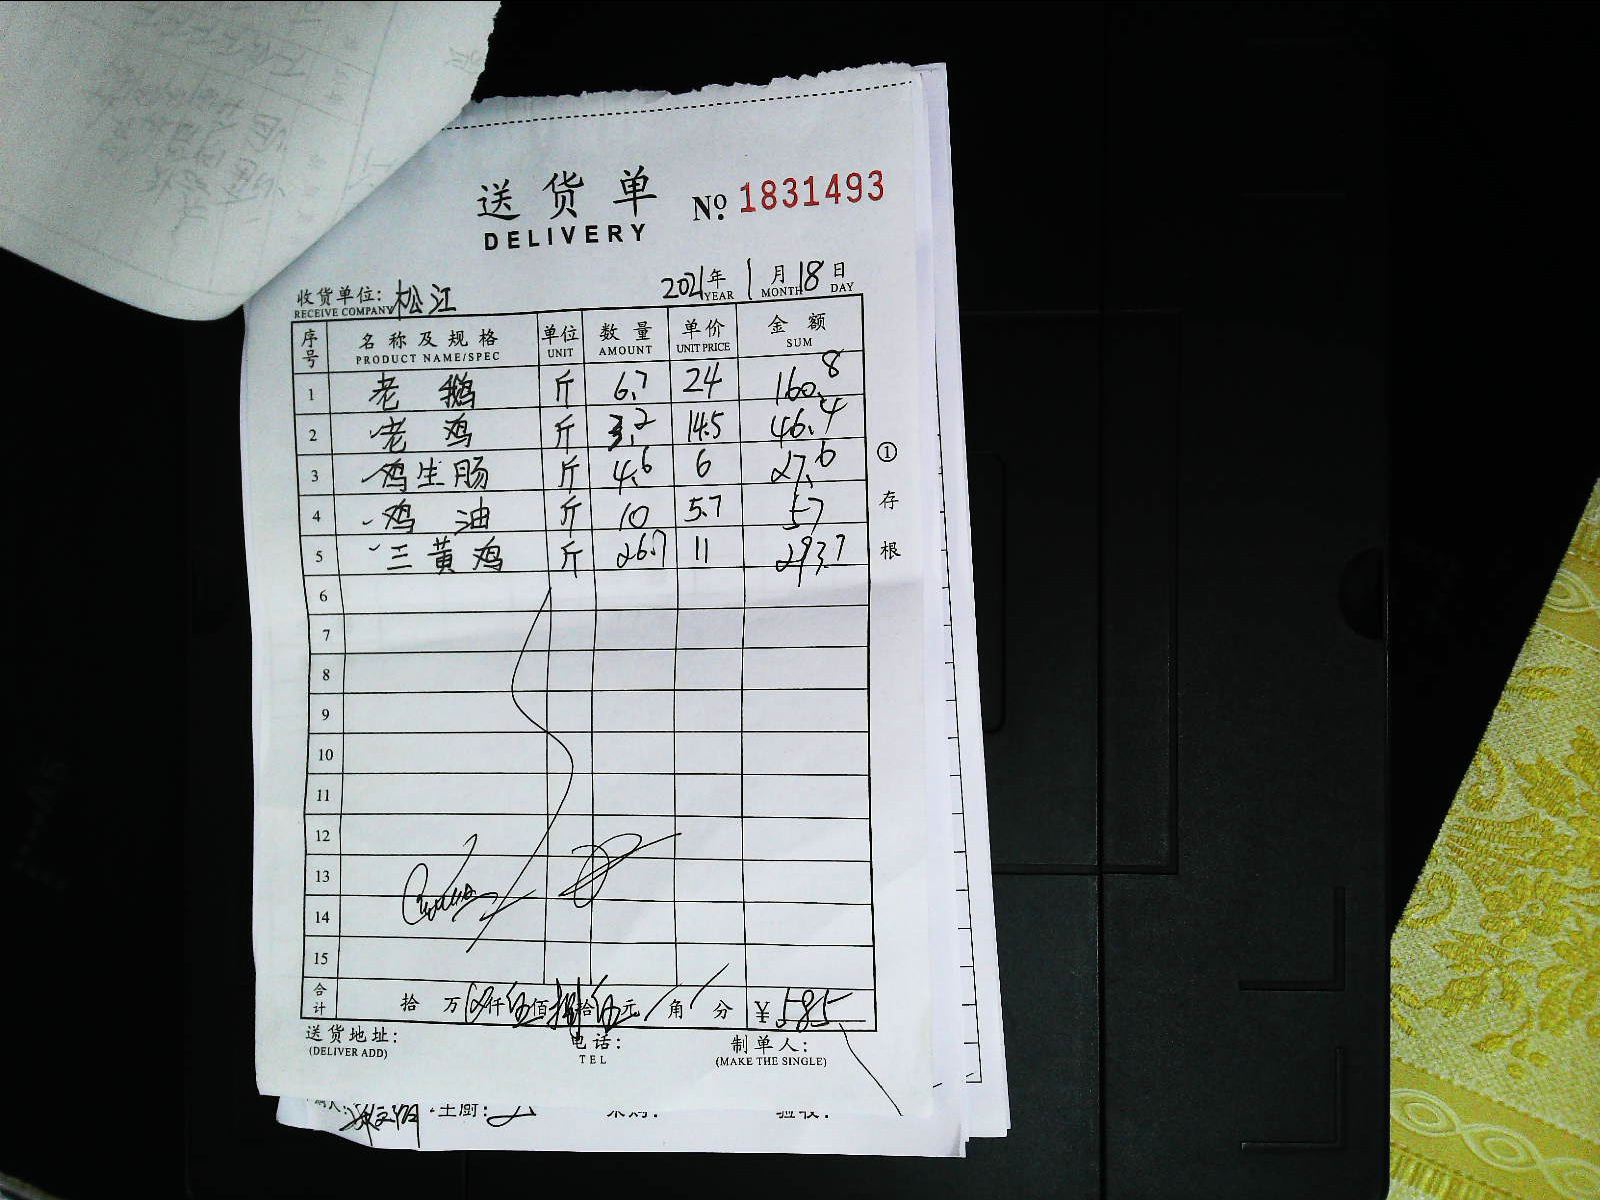 送货单 № 1831493
DELIVERY
收货单位: 松江 2021年 1月 18日
RECEIVE COMPANY YEAR MONTH DAY
序号 名称及规格 单位 数量 单价 金额
PRODUCT NAME/SPEC UNIT AMOUNT UNIT PRICE SUM
1 老鹅 斤 6.7 24 160.8
2 老鸡 斤 3.2 14.5 46.4
3 鸡生肠 斤 4.6 6 27.6
4 鸡油 斤 10 5.7 57
5 三黄鸡 斤 26.7 11 293.7
6
7
8
9
10
11
12
13
14
15
合计 拾 万 仟 伍佰 捌拾 伍元 / 角 / 分 ¥ 585
送货地址: 电话: 制单人:
(DELIVER ADD) TEL (MAKE THE SINGLE)
①存根
主厨: 采购: 验收: